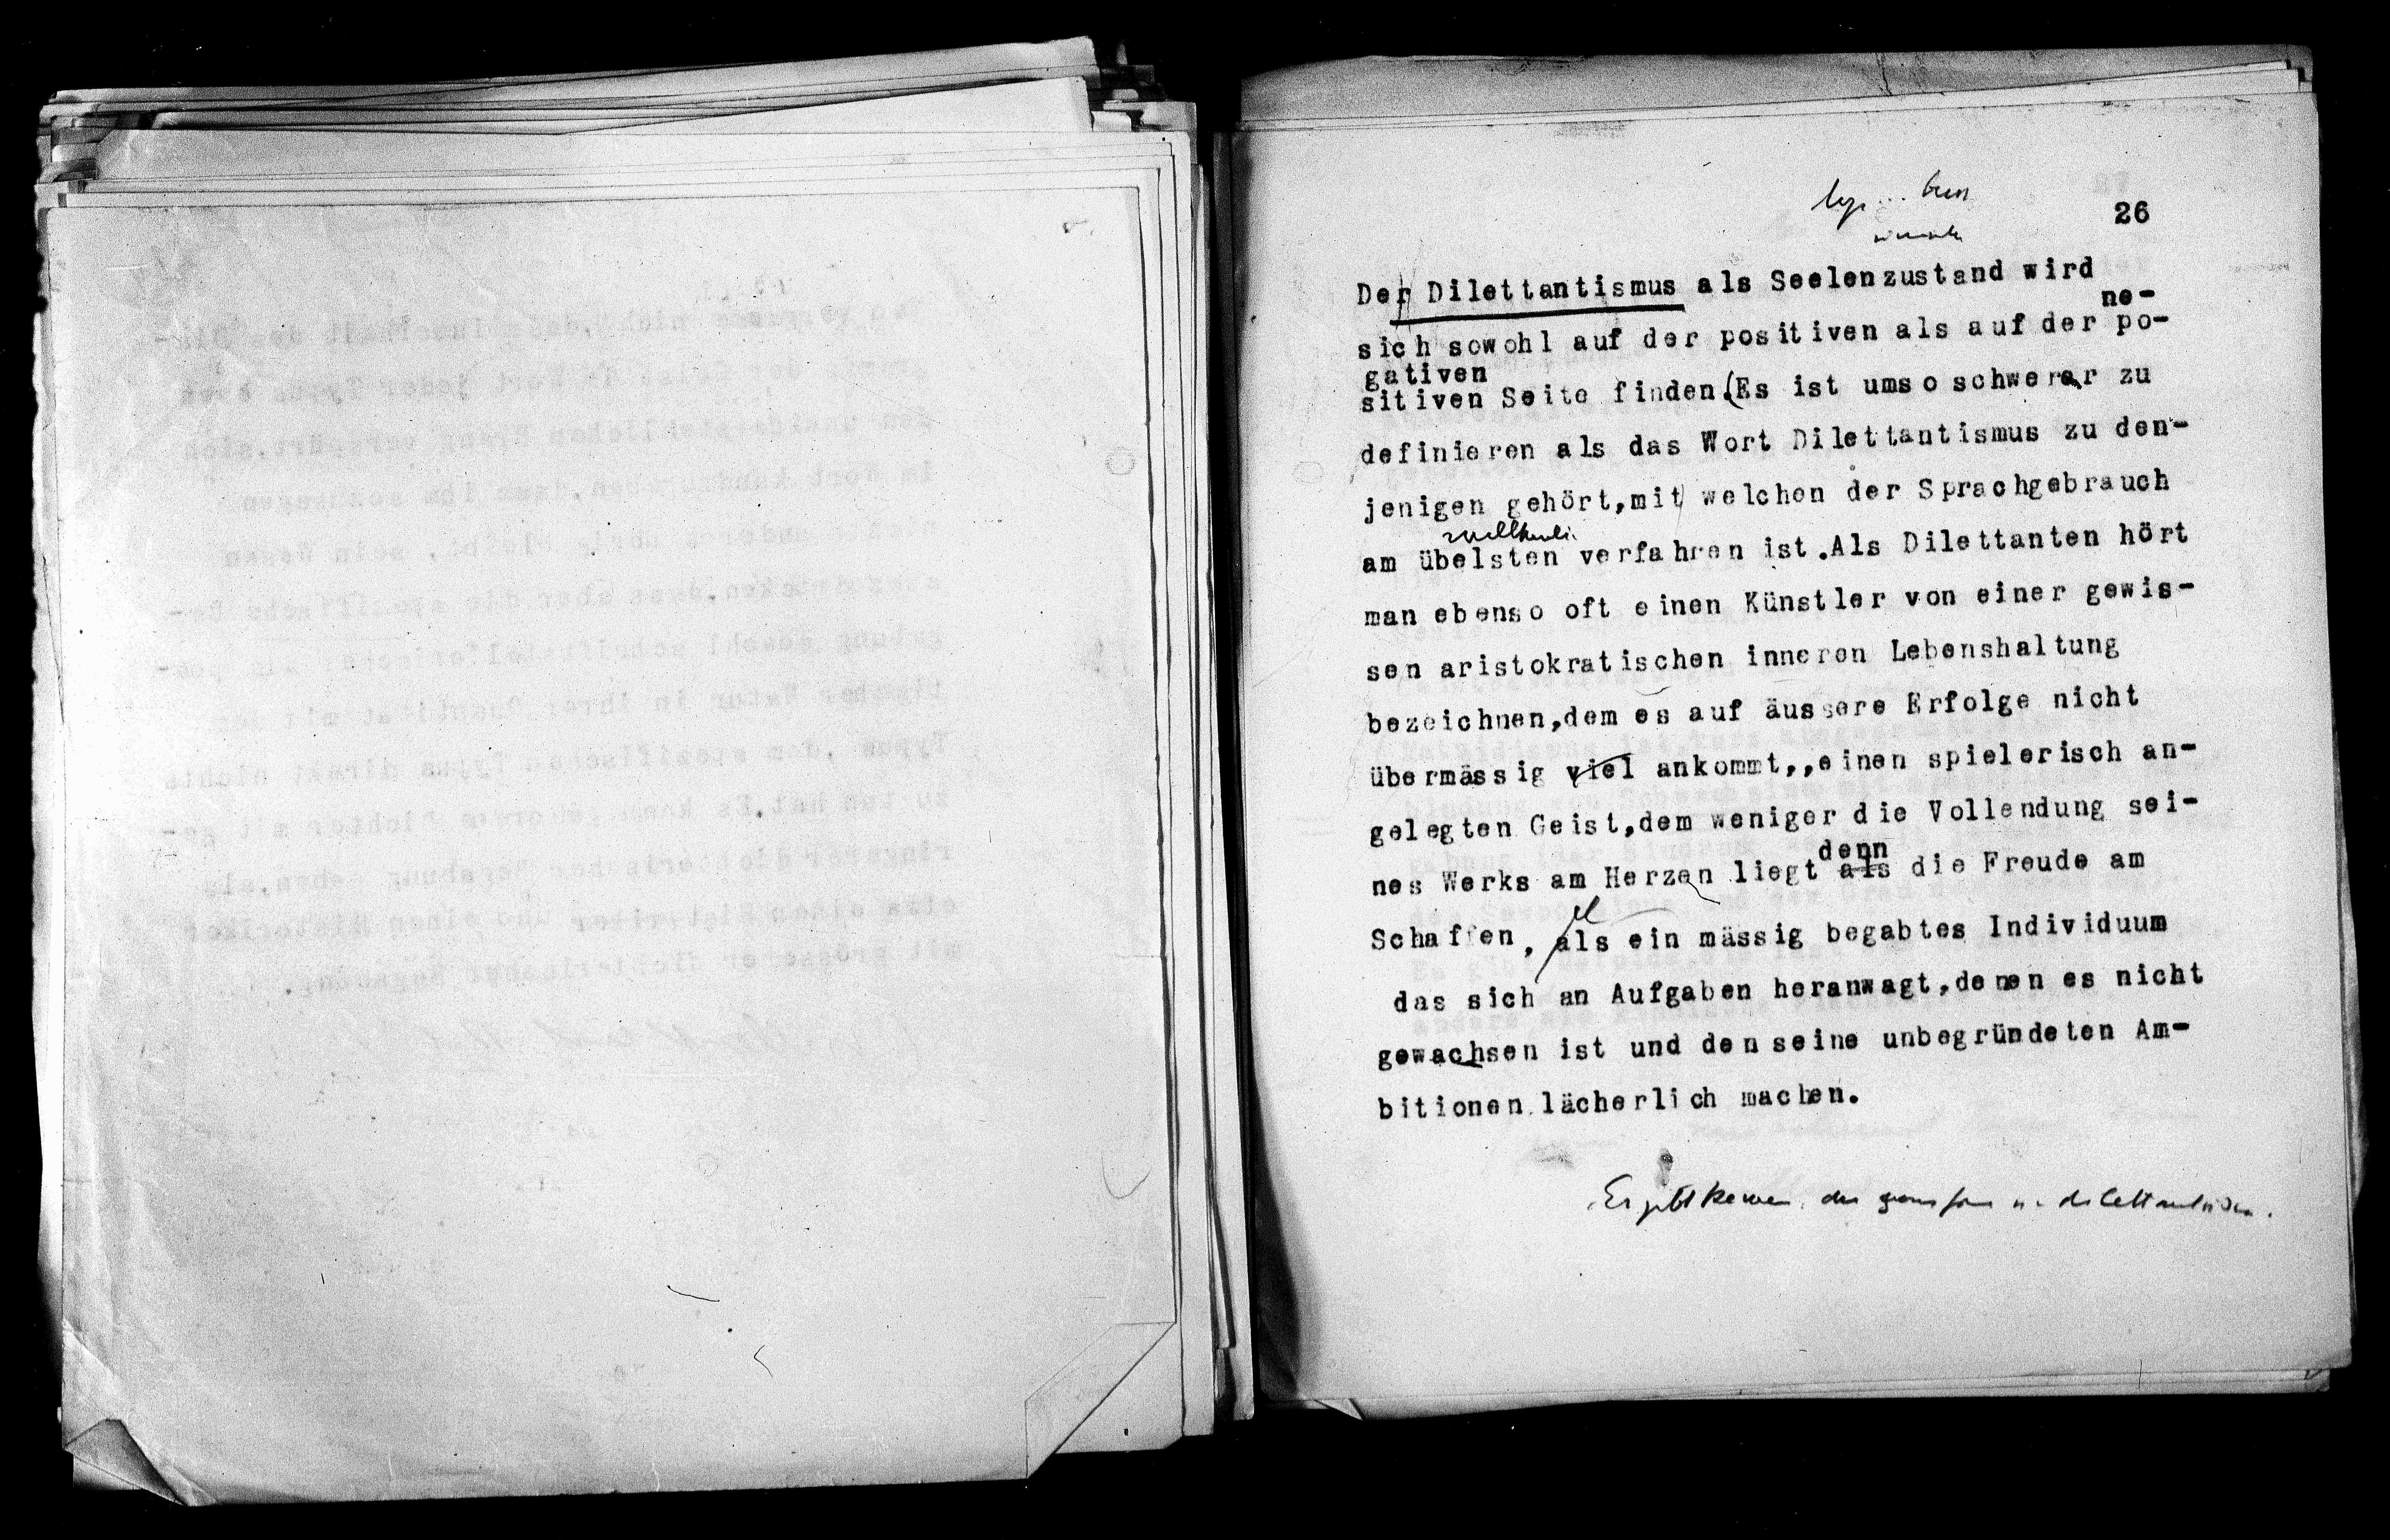 26
Der Dilettantismus als Seelenzustand wird
ne-
sich sowohl auf der positiven als auf der po-
gativen
sitiven Seite finden.(Es ist umso schwerer zu
definieren als das Wort Dilettantismus zu den-
jenigen gehört,mit welchen der Sprachgebrauch
am übelsten verfahren ist.Als Dilettanten hört
man ebenso oft einen Künstler von einer gewis-
sen aristokratischen inneren Lebenshaltung
bezeichnen,dem es auf äussere Erfolge nicht
übermässig viel ankommt,,einen spielerisch an-
gelegten Geist,dem weniger die Vollendung sei-
denn
nes Werks am Herzen liegt als die Freude am
Schaffen, als ein mässig begabtes Individuum
das sich an Aufgaben heranwagt,denen es nicht
gewachsen ist und den seine unbegründeten Am-
bitionen lächerlich machen.
Es gibt